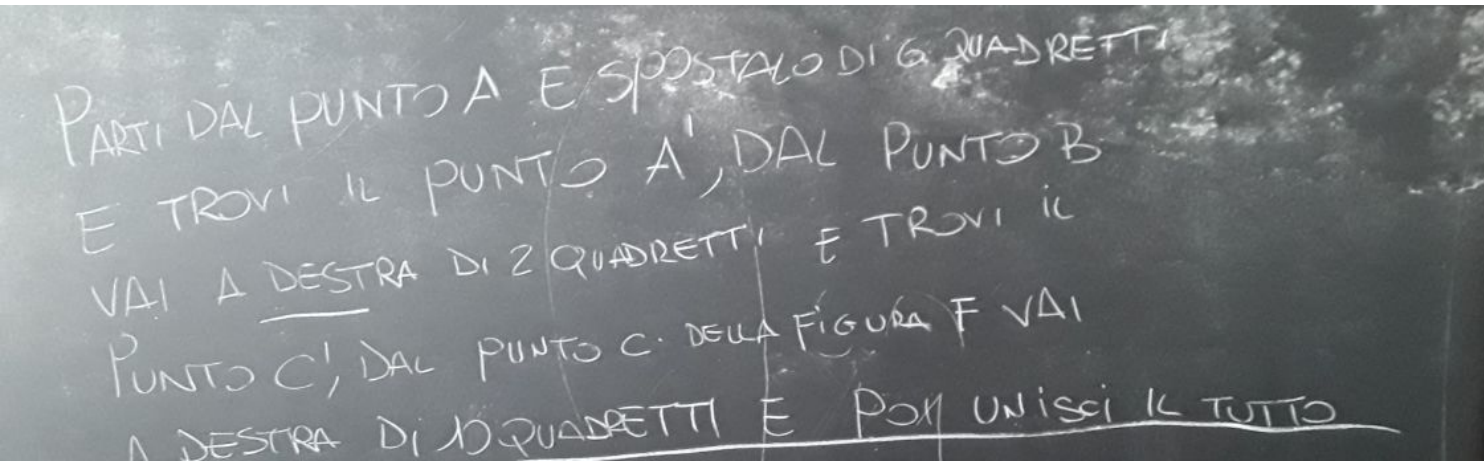 PARTI DAL PUNTO A E SPOSTALO DI 6 QUADRETTI
E TROVI IL PUNTO A', DAL PUNTO B
VAI A DESTRA DI 2 QUADRETTI E TROVI IL
PUNTO C', DAL PUNTO C. DELLA FIGURA F VAI
A DESTRA DI 10 QUADRETTI E POI UNISCI IL TUTTO